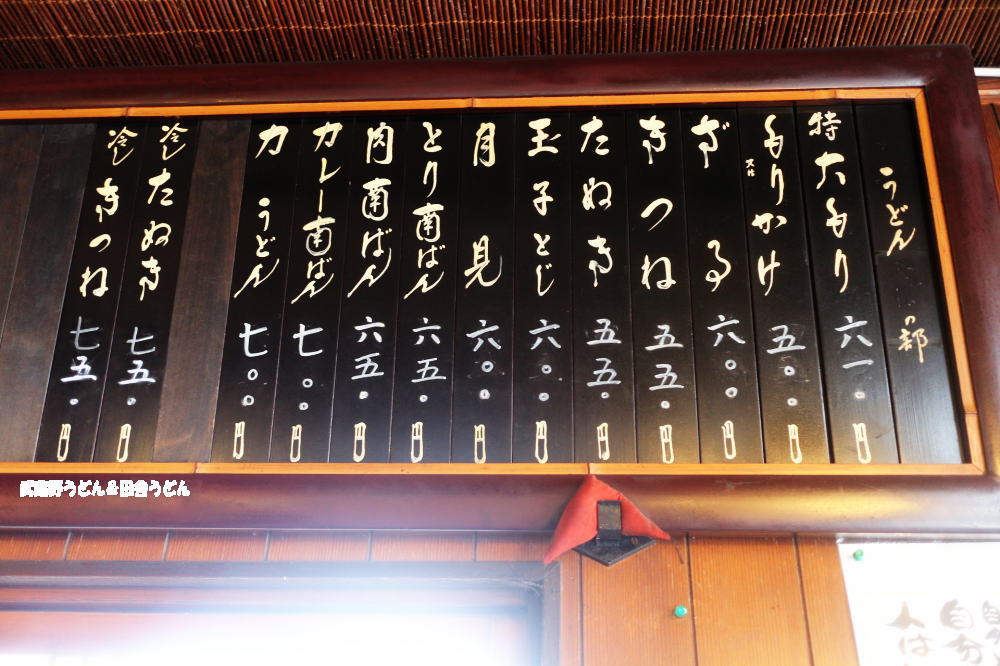 うどんの部
特大もり 六一〇円
もりかけ 五〇〇円
ざる 六〇〇円
きつね 五五〇円
たぬき 五五〇円
玉子とじ 六〇〇円
月見 六〇〇円
とり南ばん 六五〇円
肉南ばん 六五〇円
カレー南ばん 七〇〇円
力うどん 七〇〇円
冷したぬき 七五〇円
冷しきつね 七五〇円
武蔵野うどん&田舎うどん
自分
人は